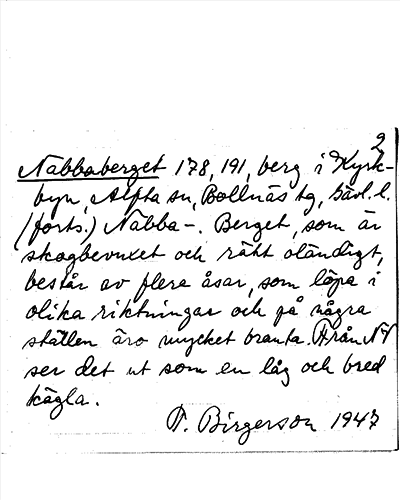 2
Nabbaberget 178, 191, berg i Kyrk-
byn, Alfta sn, Bollnäs tg, Gävl. l.
(forts.) Nabba-. Berget, som är
skogbevuxet och rätt oländigt,
består av flera åsar, som löpa i
olika riktningar och på några
ställen äro mycket branta. Från NV
ser det ut som en låg och bred
kägla.
F. Birgerson 1947